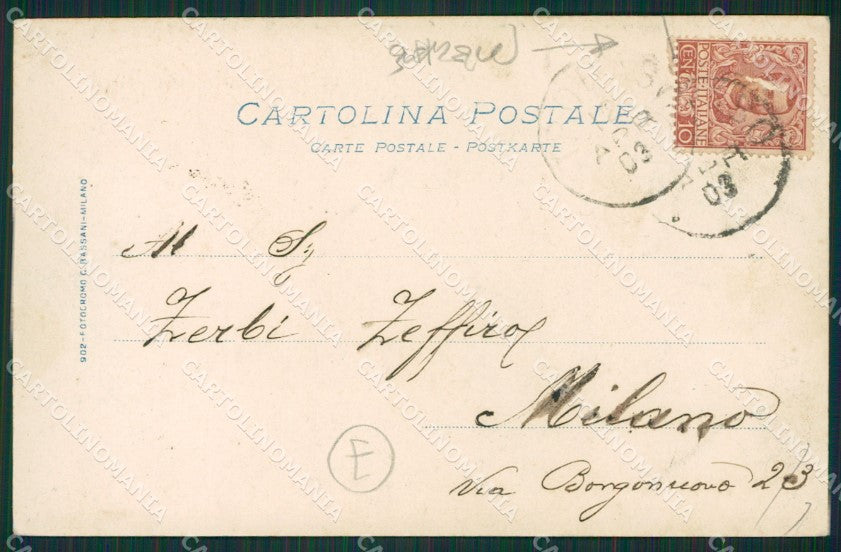 CARTOLINA POSTALE
CARTE POSTALE - POSTKARTE
POSTE·ITALIANE
CENT. 10
03
03
Al Sig
Zerbi Zeffiro
Milano
Via Borgonuovo 23
902-FOTOCROMO C. BASSANI-MILANO
CARTOLINOMANIA